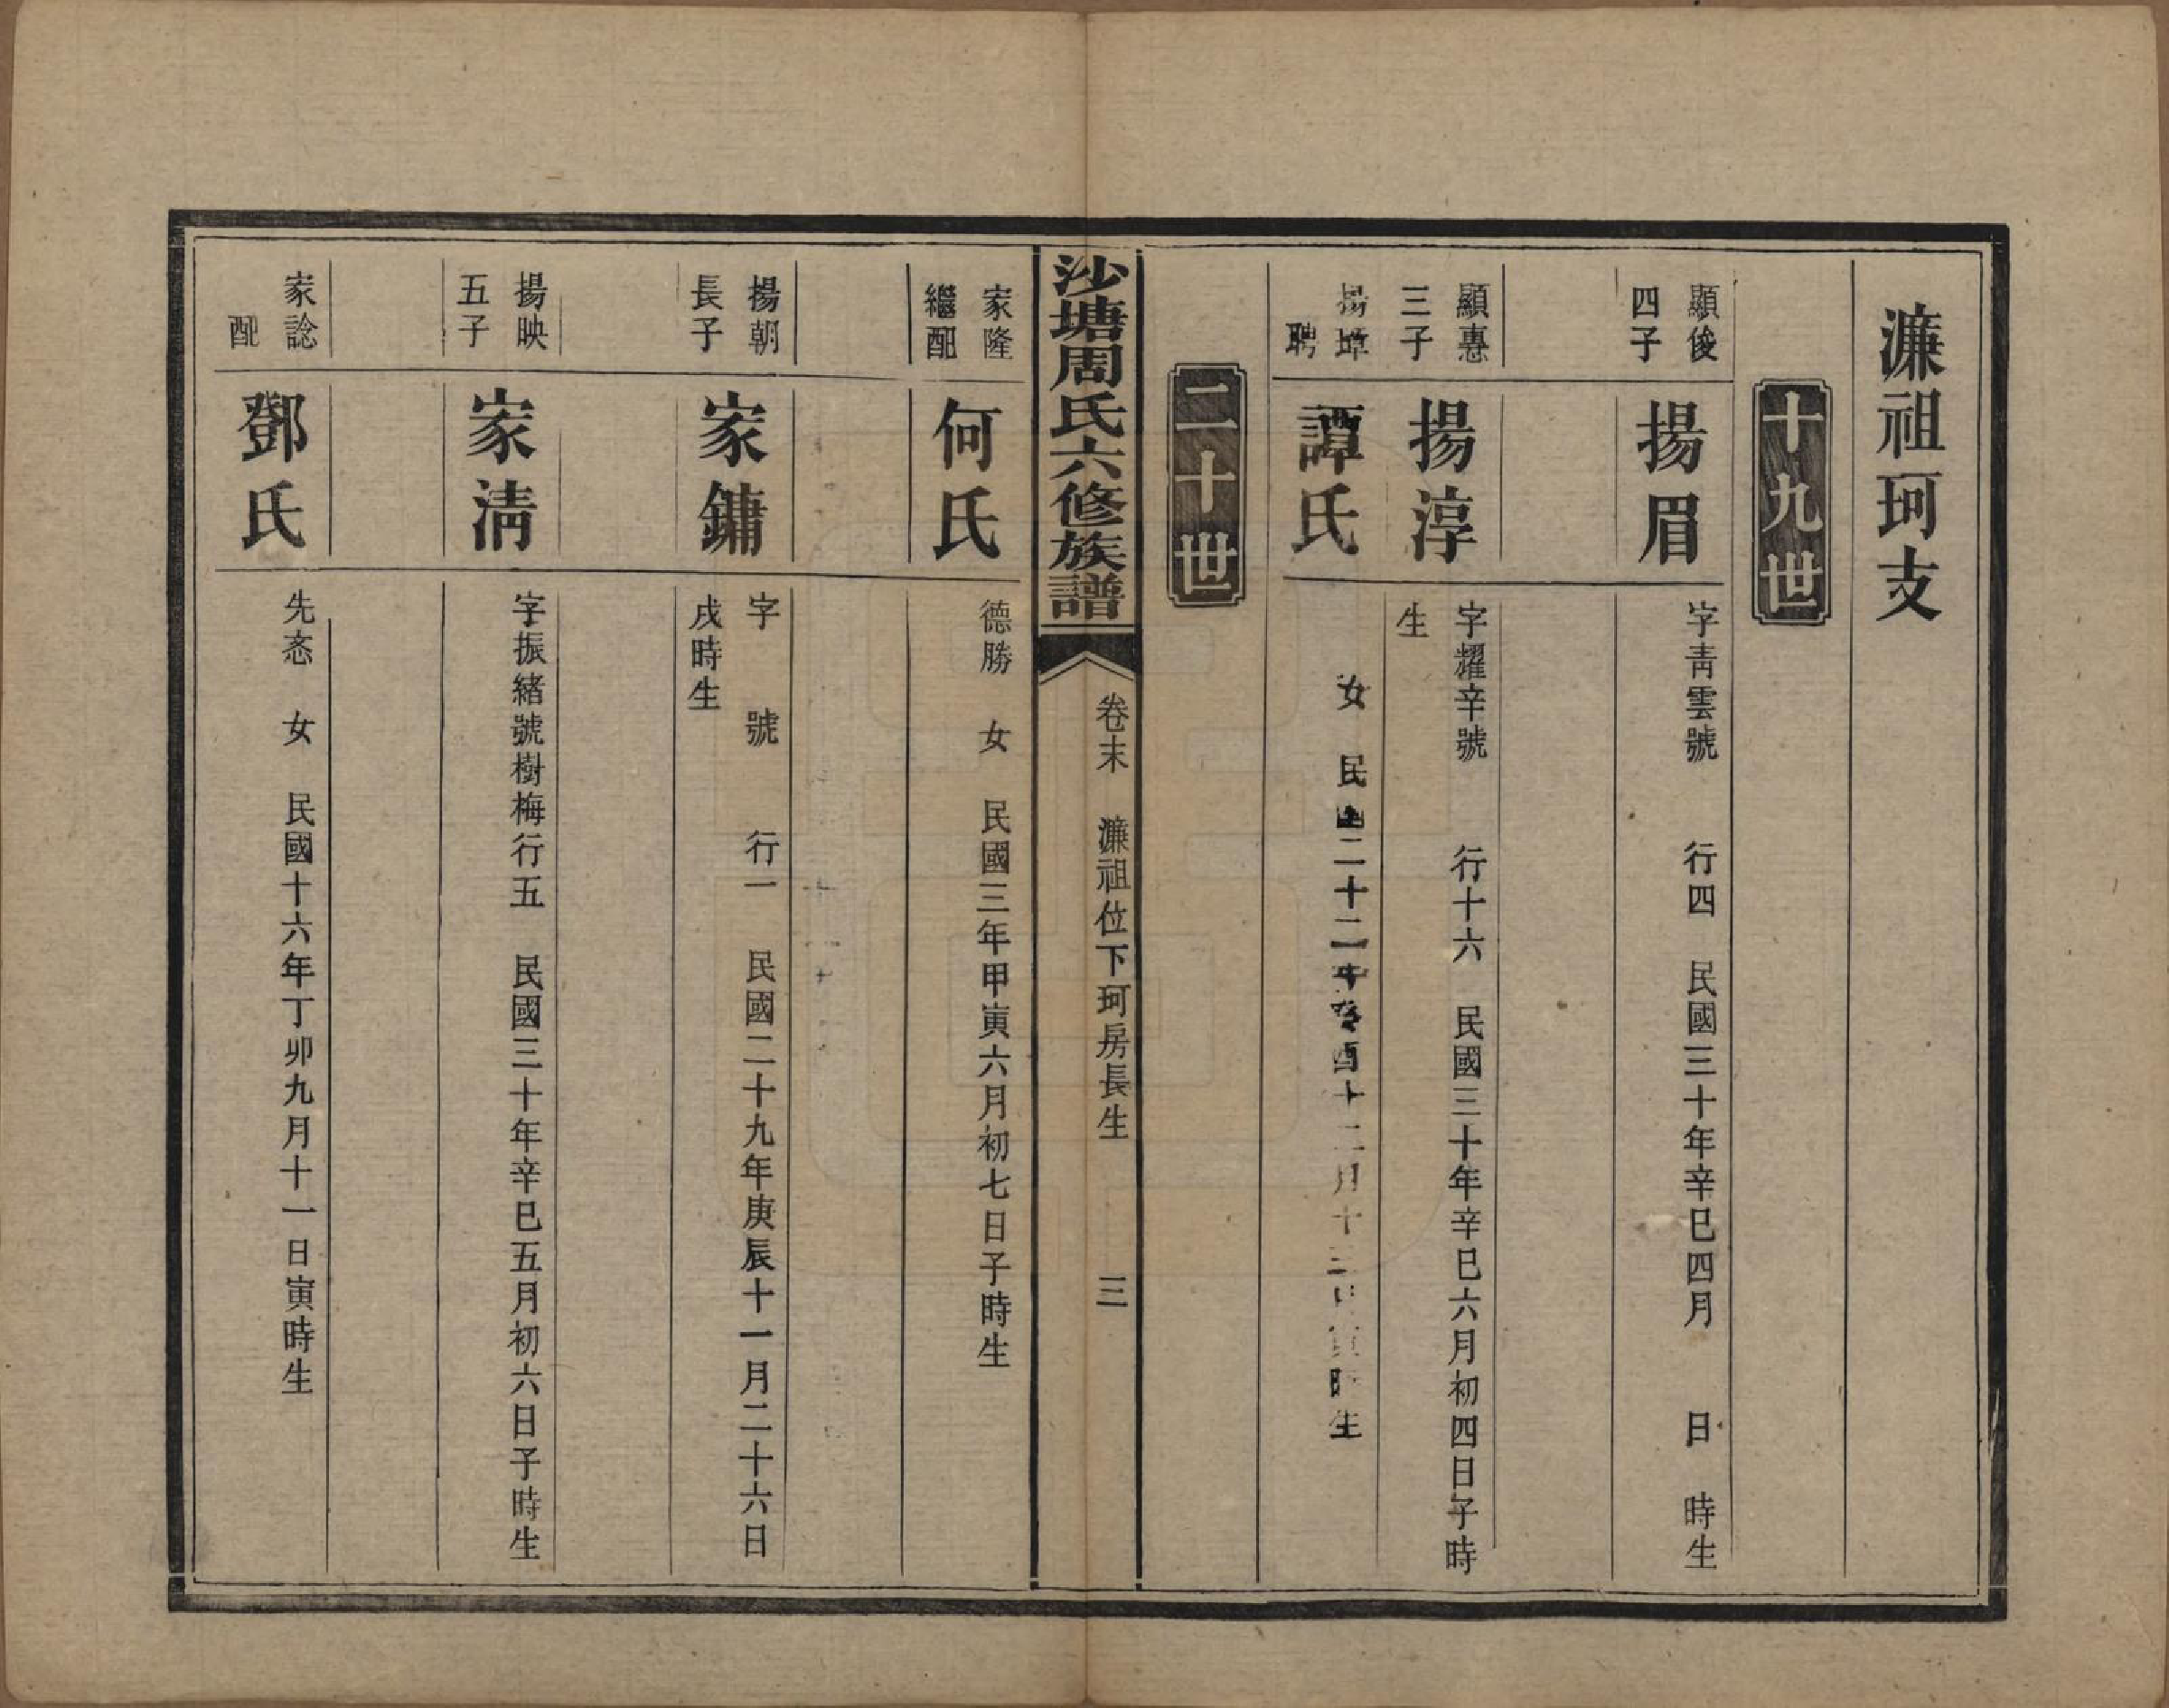 濂祖珂支
十九世
顯俊
四子
揚眉
字靑雲號　行四　民國三十年辛巳四月　日　時生
顯惠
三子
揚淳
字耀辛號　行十六　民國三十年辛巳六月初四日子時
生
揚埻
聘
譚氏
女　民國二十二年癸酉十二月十三日　時生
二十世
沙塘周氏六修族譜
卷末　濂祖位下珂房長生　三
家隆
繼配
何氏
德勝　女　民國三年甲寅六月初七日子時生
揚朝
長子
家鏞
字　號　行一　民國二十九年庚辰十一月二十六日
戌時生
揚映
五子
家淸
字振緒號樹梅行五　民國三十年辛巳五月初六日子時生
家諗
配
鄧氏
先忞　女　民國十六年丁卯九月十一日寅時生